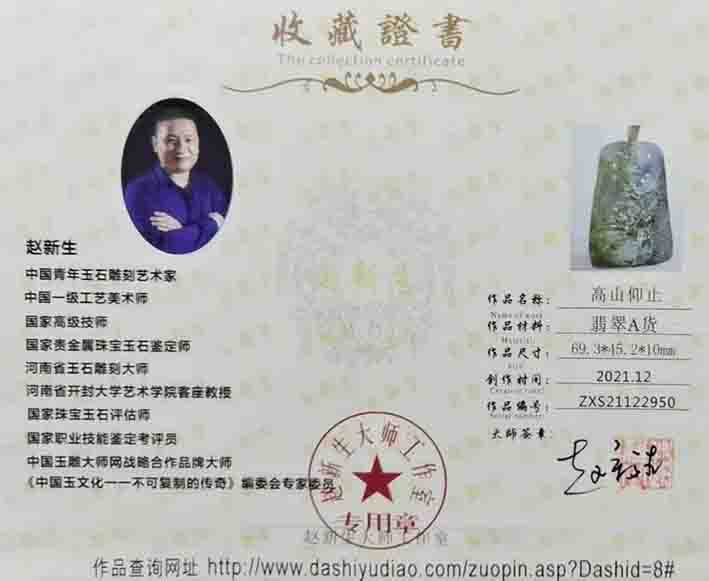 收藏證書
The collection certificate
赵新生
中国青年玉石雕刻艺术家
中国一级工艺美术师
国家高级技师
国家贵金属珠宝玉石鉴定师
河南省玉石雕刻大师
河南省开封大学艺术学院客座教授
国家珠宝玉石评估师
国家职业技能鉴定考评员
中国玉雕大师网战略合作品牌大师
《中国玉文化一一不可复制的传奇》编委会专家委员
作品名称： 高山仰止
Name of work
作品材料： 翡翠A货
Material
作品尺寸： 69.3*45.2*10mm
创作时间： 2021.12
Creation time
作品编号： ZXS21122950
Serial number
大师签章：
赵新生
赵新生大师工作室
专用章
赵新生大师工作室
作品查询网址 http://www.dashiyudiao.com/zuopin.asp?Dashid=8#